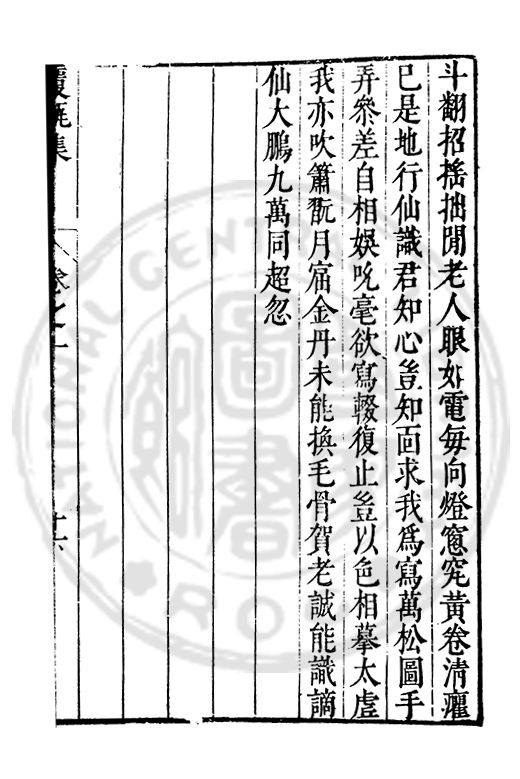 斗翻招揺拙閒老人眼如電每向燈窻究黃卷清癯
已是地行仙識君知心豈知面求我爲寫萬松圖手
弄叅差自相娛吮毫欲寫輟復止豈以色相摹太虛
我亦吹簫翫月窟金丹未能換毛骨賀老誠能識謫
仙大鵬九萬同超忽
覆瓿集
卷之十
十六